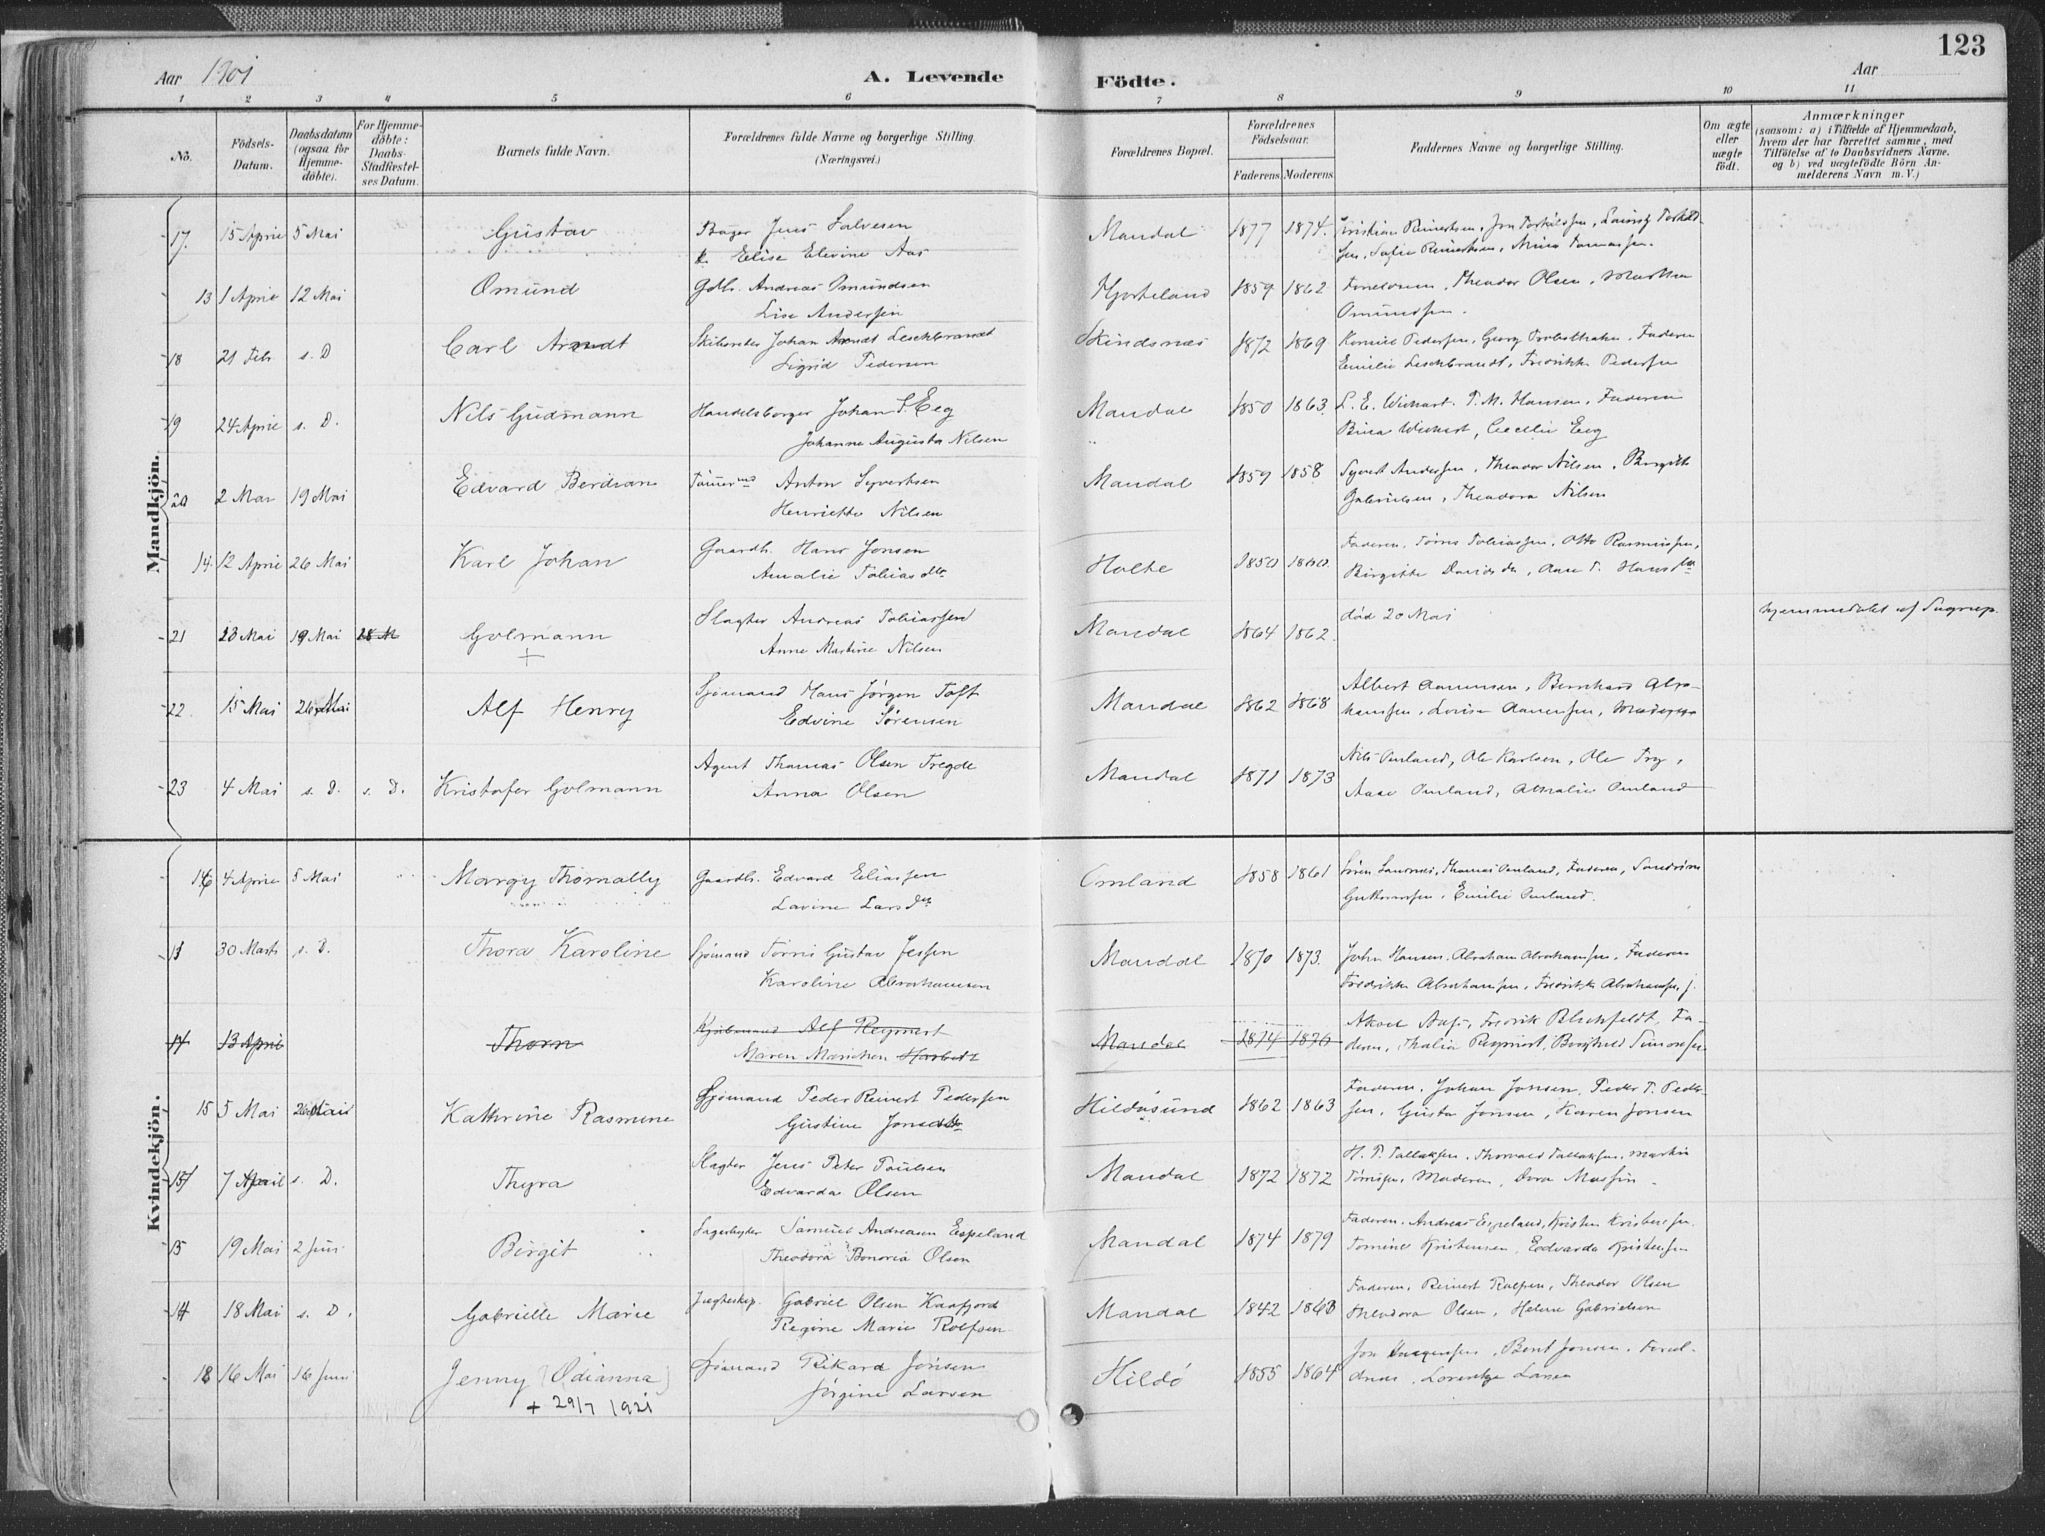 123
Aar 1901
A. Levende Födte.
Aar
1 2 3 4 5 6 7 8 9 10 11
No.
Födsels-Datum.
Daabsdatum (ogsaa for Hjemmedöbte).
For Hjemmedöbte: Daabs-Stadfæstelses Datum.
Barnets fulde Navn.
Forældrenes fulde Navne og borgerlige Stilling. (Næringsvei.)
Forældrenes Bopæl.
Forældrenes Födselsaar.
Faderens. Moderens
Faddernes Navne og borgerlige Stilling.
Om ægte eller uægte födt.
Anmærkninger
(saasom: a) i Tilfælde af Hjemmedaab, hvem der har forrettet samme, med Tilföielse af to Daabsvidners Navne. og b) ved uægtefödte Börn Anmelderens Navn m. V.)
Mandkjön.
17 15 April 5 Mai Gustav Bager Jens Salvesen Mandal 1877 1874. Kristian Reinertsen,
Elise Elevine Aas
13 1 April 12 Mai Omund Gdbr. Andreas Omundsen 1859 1862 Theodor Olsen,
Lise Andersen Omundsen.
18 21 Feb s. D Carl Arndt Johan Arndt Leschbrandt Skindsnæs 1872 1869 Pedersen, Georg Faderen
Sigrid Pedersen Emilie Leschbrandt, Fredrikke Pedersen
19 24 April s. D. Nils Gudmann Handelsborger Johan S. Eeg Mandal 1850 1863. L. E. Wichart. T. M. Hansen. Faderen
Johanne Augusta Nilsen Wichart, Cecilie Eeg
20 2 Mar 19 Mai Edvard Berdian Tömmermd Anton Syvertsen Mandal 1859 1858 Syvert Andersen, Theodor Nilsen, Birgitte
Henriette Nilsen Gabrielsen, Theodora Nilsen
14. 12 April 26 Mai Karl Johan Gaardb. Hans Jonsen Holte 1850 1860. Faderen, Tobiassen, Otto Rasmussen,
Amalie Tobiasdtr Birgitte Davidsdtr, Aase T. Hansdtr
21 20 Mai 19 Mai Golmann Slagter Andreas Tobiassen Mandal 1864 1862. död 20 Mai hjemmedøbt af
+ Anne Martine Nilsen
22. 15 Mai 26 Mai Alf Henry Sjömand Hans Jörgen Toft Mandal 1862 1868 Albert Aanensen, Bernhard Abra-
Edvine Sörensen hamsen, Lovise Aanensen, Moderen
23 4 Mai s. D. s. D. Kristofer Golmann Agent Thomas Olsen Tregde Mandal 1871 1873 Nils Omland, Ole Karlsen, Ole Try,
Anna Olsen Aase Omland, Amalie Omland
Kvindekjön.
16 4 April 5 Mai Margy Thomally Gaardb. Edvard Eliassen Omland 1858 1861 Sören Thomas Omland, Faderen,
Lovine Larsdtr Guttormsen, Emilie Omland.
30 Marts s. D. Thora Karoline Sjömand Tönnis Gustav Jessen Mandal 1870 1873. John Hansen, Abraham Abrahamsen, Faderen
Karoline Abrahamsen Fredrikke Abrahamsen, Fredrikke Abrahamsen, j.
14 13 April Thorn Alf Reymert Mandal 1874 1876 Aksel Fredrik Blichfeldt, Fa-
Maren Marichen deren, Thalia Reymert, Borghild Simonsen
15 5 Mai 26 Mai Kathrine Rasmine Sjömand Peder Reinert Pedersen Hildösund 1862 1863 Faderen, Johan Jonsen, Peder T. Peder-
Gustine Jonsdtr sen, Jonsen, Karen Jonsen
7 April s. D. Thyra Slagter Jens Peter Poulsen Mandal 1872 1872 H. P. Tallaksen, Thorvald Tallaksen, Martin
Edvarda Olsen Tönnisen, Moderen, Dora
15 19 Mai 2 Juni Birgit Samuel Andreas Espeland Mandal 1874 1879 Faderen, Andreas Espeland, Kristen Kristensen
Theodora Honoria Olsen Tomine Kristensen, Edvarda Kristensen
14 18 Mai s. D. Gabrielle Marie Jægteskip. Gabriel Olsen Kaafjord Mandal 1842 1860 Faderen, Reinert Rolfsen, Theodor Olsen
Regine Marie Rolfsen Theodora Olsen, Helene Gabrielsen
18 16 Mai 16 Juni Jenny (Odianna) Sjömand Rikard Jonsen Hildö 1855 1864 Jon Bent Jonsen, Foræl-
+ 29/7 1921 Jörgine Larsen drene, Lorentze Larsen